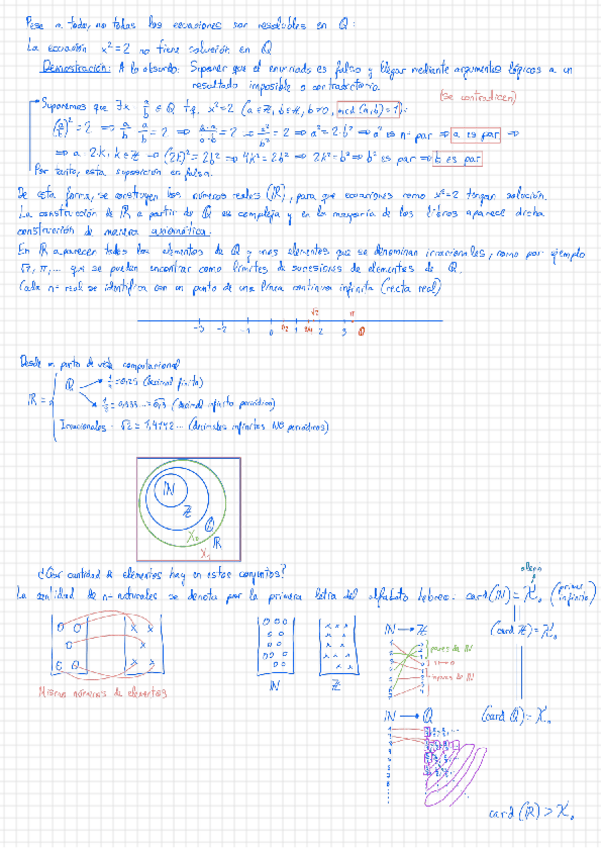 Pese a todo, no todas las ecuaciones son resolubles en Q:
La ecuación x²=2 no tiene solución en Q
Demostración: A lo absurdo: Suponer que el enunciado es falso y llegar mediante argumentos lógicos a un
resultado imposible o contradictorio.
(se contradicen)
Suponemos que ∃x a/b ∈ Q t.q. x²=2 (a∈Z, b∈Z, b≠0, mcd(a,b)=1):
(a/b)² = 2 ⇒ a/b · a/b = 2 ⇒ a·a/b·b = 2 ⇒ a²/b² = 2 ⇒ a²=2·b² ⇒ a² es nº par ⇒ a es par ⇒
⇒ a=2·k, k∈Z → (2k)² = 2b² ⇒ 4k² = 2b² ⇒ 2k² = b² ⇒ b² es par ⇒ b es par
Por tanto, esta suposición es falsa.
De esta forma, se construyen los números reales (R), para que ecuaciones como x²=2 tengan solución.
La construcción de R a partir de Q es compleja y en la mayoría de los libros aparece dicha
construcción de manera axiomática.
En R aparecen todos los elementos de Q y unos elementos que se denominan irracionales, como por ejemplo
√2, π,... que se pueden encontrar como límites de sucesiones de elementos de Q.
Cada nº real se identifica con un punto de una línea continua infinita (recta real)
√2 π
-3 -2 -1 0 1/2 1 2 3
Desde un punto de vista computacional
R =
Q
= 0,25 (decimal finito)
1/3 = 0,333... = 0,3 (decimal infinito periódico)
Irracionales - √2 = 1,4142... (decimales infinitos NO periódicos)
N
Z
Q
R
¿Qué cantidad de elementos hay en estos conjuntos?
aleph
La cantidad de nº naturales se denota por la primera letra del alfabeto hebreo: card(N) = ℵ₀ (primer infinito)
N → Z
pares de N
impares de N
(card Z) = ℵ₀
N
Z
Mismo número de elementos
N → Q
(card Q) = ℵ₀
card(R) > ℵ₀